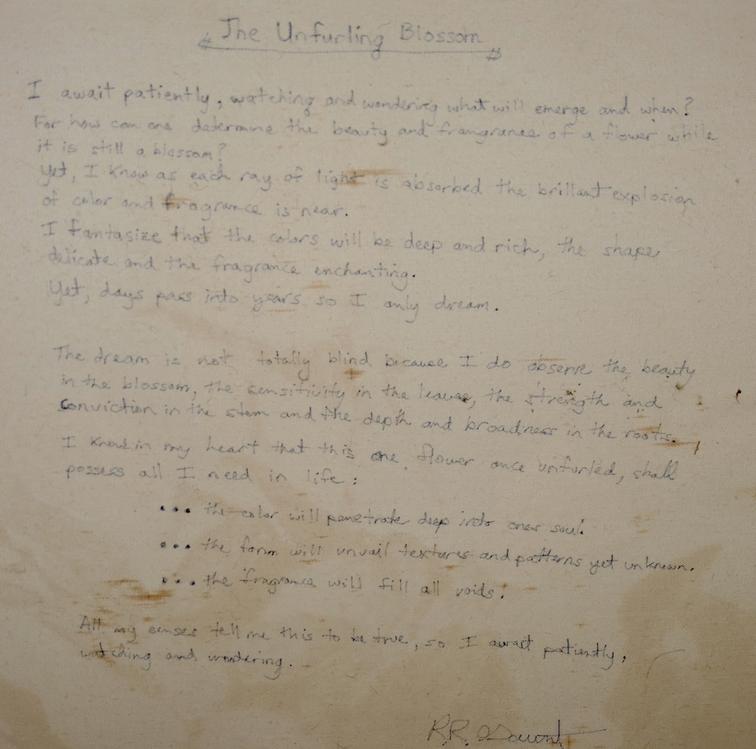 The Unfurling Blossom
I await patiently, watching and wondering what will emerge and when?
For how can one determine the beauty and frangrance of a flower while
it is still a blossom?
Yet, I know as each ray of light is absorbed the brilliant explosion
of color and fragrance is near.
I fantasize that the colors will be deep and rich, the shape
delicate and the fragrance enchanting.
Yet, days pass into years so I only dream.
The dream is not totally blind because I do observe the beauty
in the blossom, the sensitivity in the leaves, the strength and
conviction in the stem and the depth and broadness in the roots.
I know in my heart that this one flower once unfurled, shall
possess all I need in life:
... the color will penetrate deep into ones soul.
... the form will unvail textures and patterns yet unknown.
... the fragrance will fill all voids.
All my senses tell me this to be true, so I await patiently,
watching and wondering.
R.R.